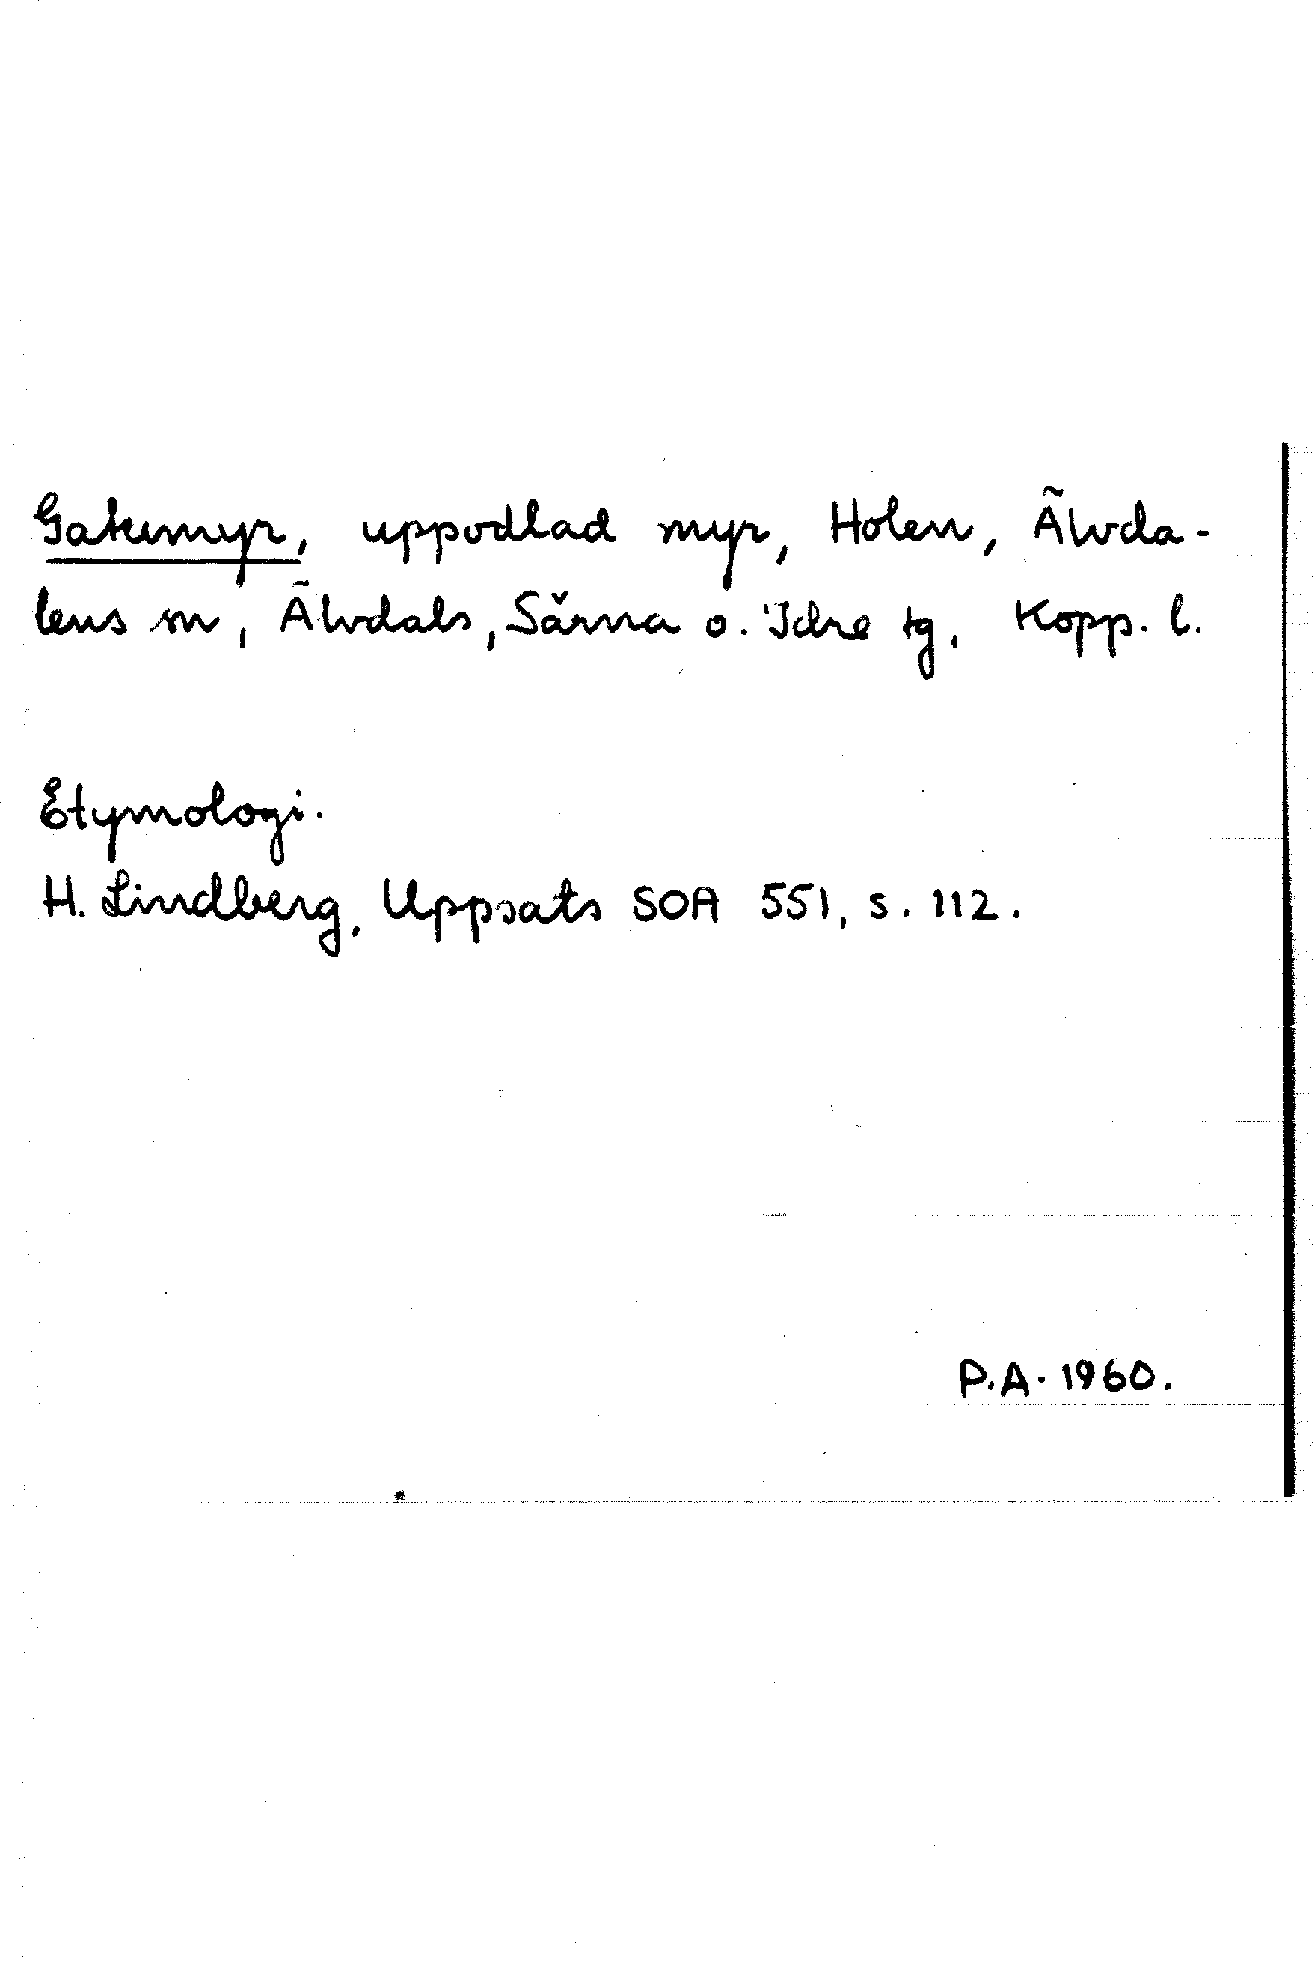 Gakumyr, uppodlad myr, Holen, Älvda-
lens sn, Älvdals, Särna o. Idre tg, Kopp. l.
Etymologi.
H. Lindberg, Uppsats SOA 551, s. 112.
P.A. 1960.